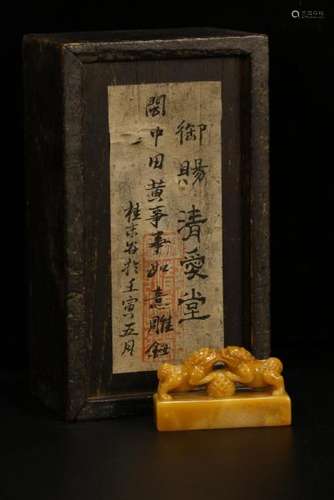 御賜清愛堂
閩中田黃事事如意雕鈕
桂未谷於壬寅五月